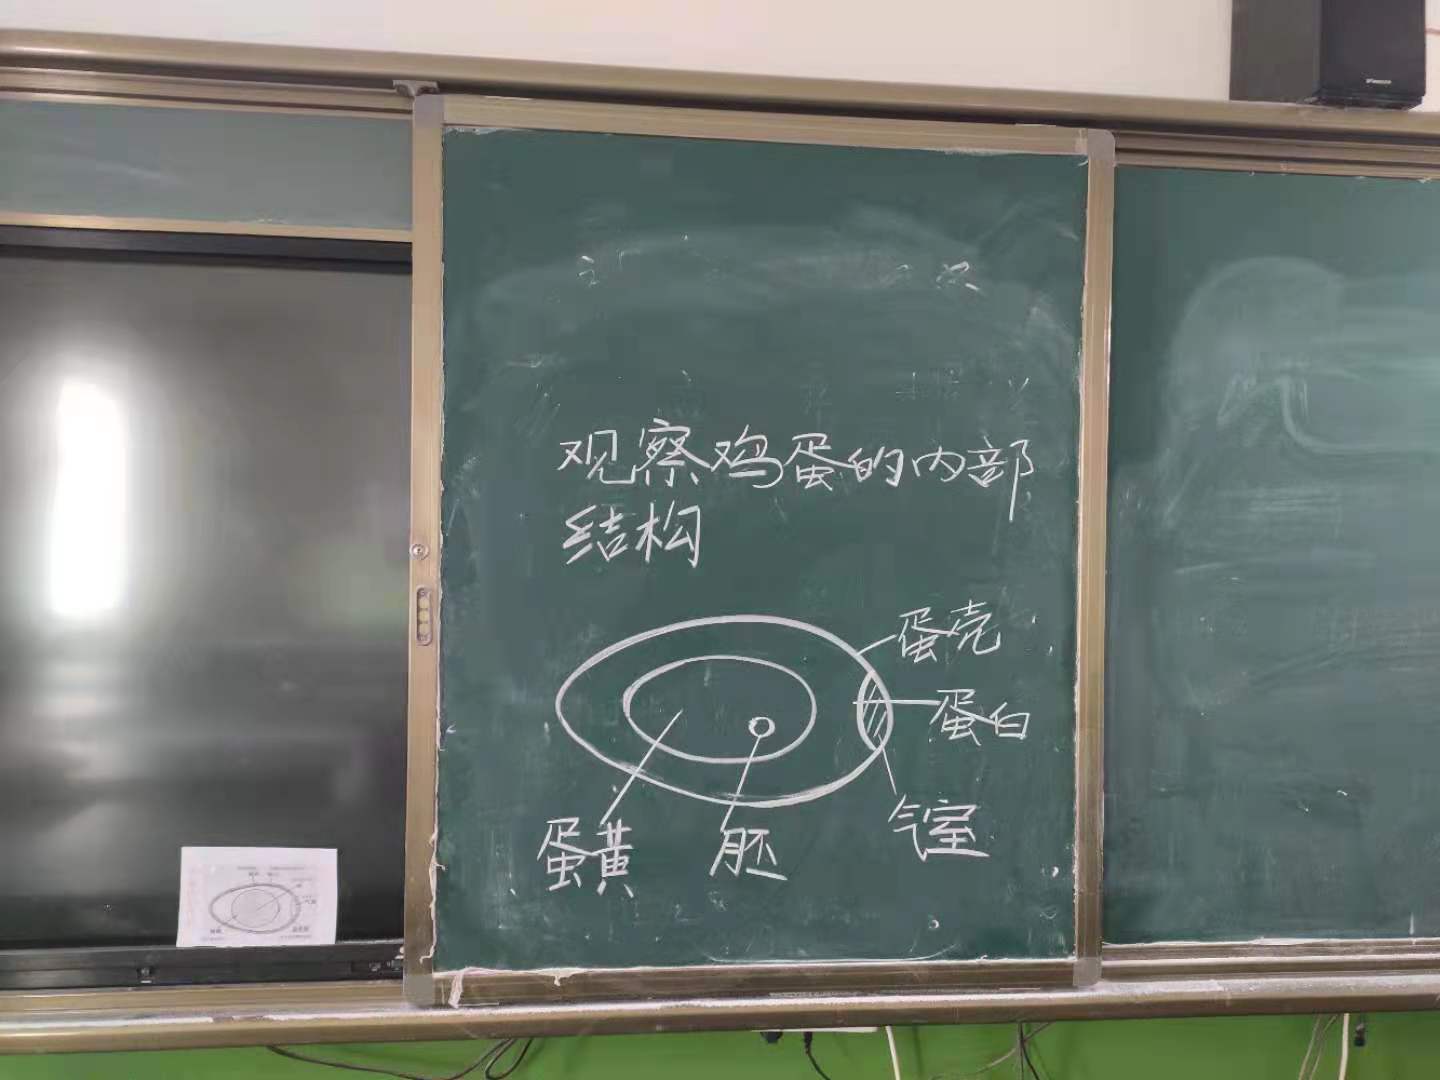 观察鸡蛋的内部
结构
蛋壳
蛋白
气室
蛋黄
胚